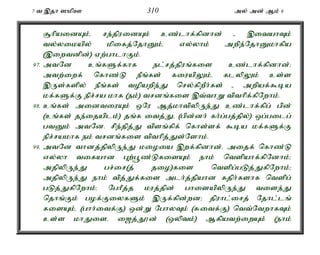 7 வ இதா ஸமிஊ 310 அல் அன் ஆம் 6
சூரியனையும், சந்திரனையும் உண்டாக்கினான் - இவையாவும்
வல்லமையில் மிகைத்தோனும், எல்லாம் அறிந்தோனுமாகிய
(இறைவனின்) ஏற்பாடாகும்.
97. அவனே உங்களுக்காக நட்சத்திரங்களை உண்டாக்கினான்;
அவற்றைக் கொண்டு நீங்கள் கரையிலும், கடலிலும் உள்ள
இருள்களில் நீங்கள் வழியறிந்து செல்கிறீர்கள் - அறியக்கூடிய
மக்களுக்கு நிச்சயமாக (நம்) வசனங்களை இவ்வாறு விவரிக்கிறோம்.
98. உங்கள் அனைவரையும் ஒரே ஆத்மாவிலிருந்து உண்டாக்கிப் பின்
(உங்கள் தந்தையிடம்) தங்க வைத்து, (பின்னர் கர்ப்பத்தில்) ஒப்படைப்
பவனும் அவனே. சிந்தித்து விளங்கிக் கொள்ளக் கூடிய மக்களுக்கு
நிச்சயமாக நம் வசனங்களை விவரித்துள்ளோம்.
99. அவனே வானத்திலிருந்து மழையை இறக்கினான். அதைக் கொண்டு
எல்லா வகையான புற்பூண்டுகளையும் நாம் வெளியாக்கினோம்;
அதிலிருந்து பச்சை(த் தழை)களை வெளிப்படுத்துகிறோம்;
அதிலிருந்து நாம் வித்துக்களை அடர்த்தியான கதிர்களாக வெளிப்
படுத்துகிறோம்; பேரீத்த மரத்தின் பாளையிலிருந்து வளைந்து
தொங்கும் பழக்குலைகளும் இருக்கின்றன; திராட்சைத் தோட்டங்
களையும், (பார்வைக்கு) ஒன்று போலவும் (சுவைக்கு) வெவ்வேறாகவும்
உள்ள மாதுளை, ஜைத்தூன் (ஒலிவம்) ஆகியவற்றையும் (நாம்